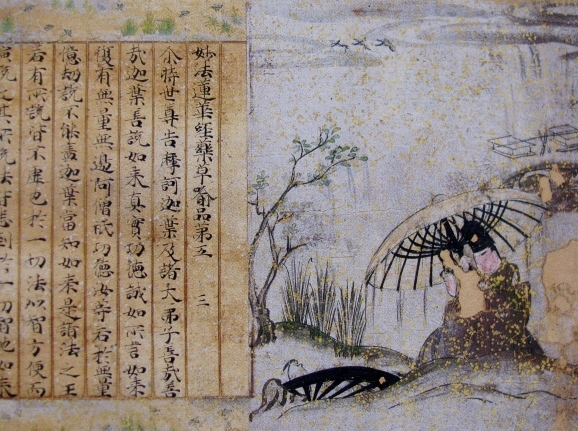 妙法蓮華經藥草喩品第五 三
尒時世尊告摩訶迦葉及諸大弟子善哉善
哉迦葉善說如来真實功德誠如所言如来
復有無量無邊阿僧祇功德汝等若於無量
億劫說不能盡迦葉當知如来是諸法之王
若有所說皆不虛也於一切法以智方便而
演說之其所說法皆悉到於一切智地如来